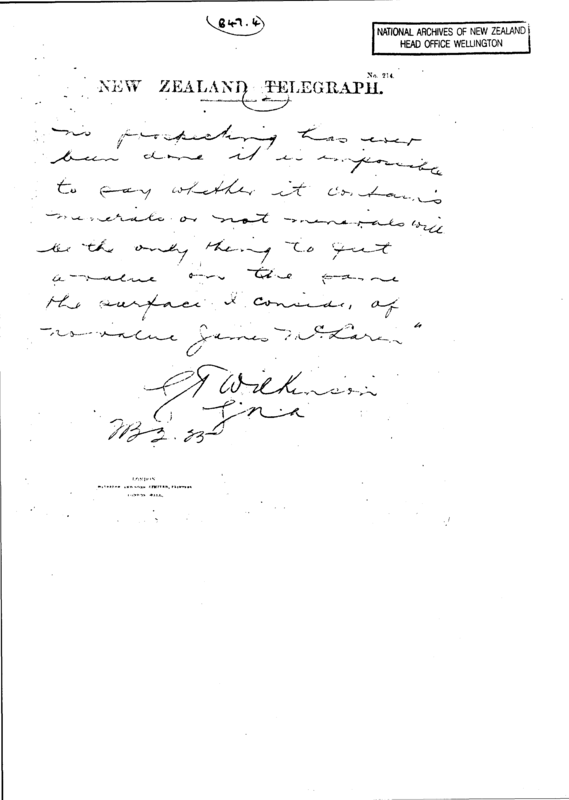 B47.4
NATIONAL ARCHIVES OF NEW ZEALAND
HEAD OFFICE WELLINGTON
No. 214.
NEW ZEALAND TELEGRAPH.
no prospecting has ever
been done it is impossible
to say whether it contains
minerals or not minerals will
be the only thing to put
a value on the same
the surface I consider of
no value James McLaren"
Wilkinson
LONDON